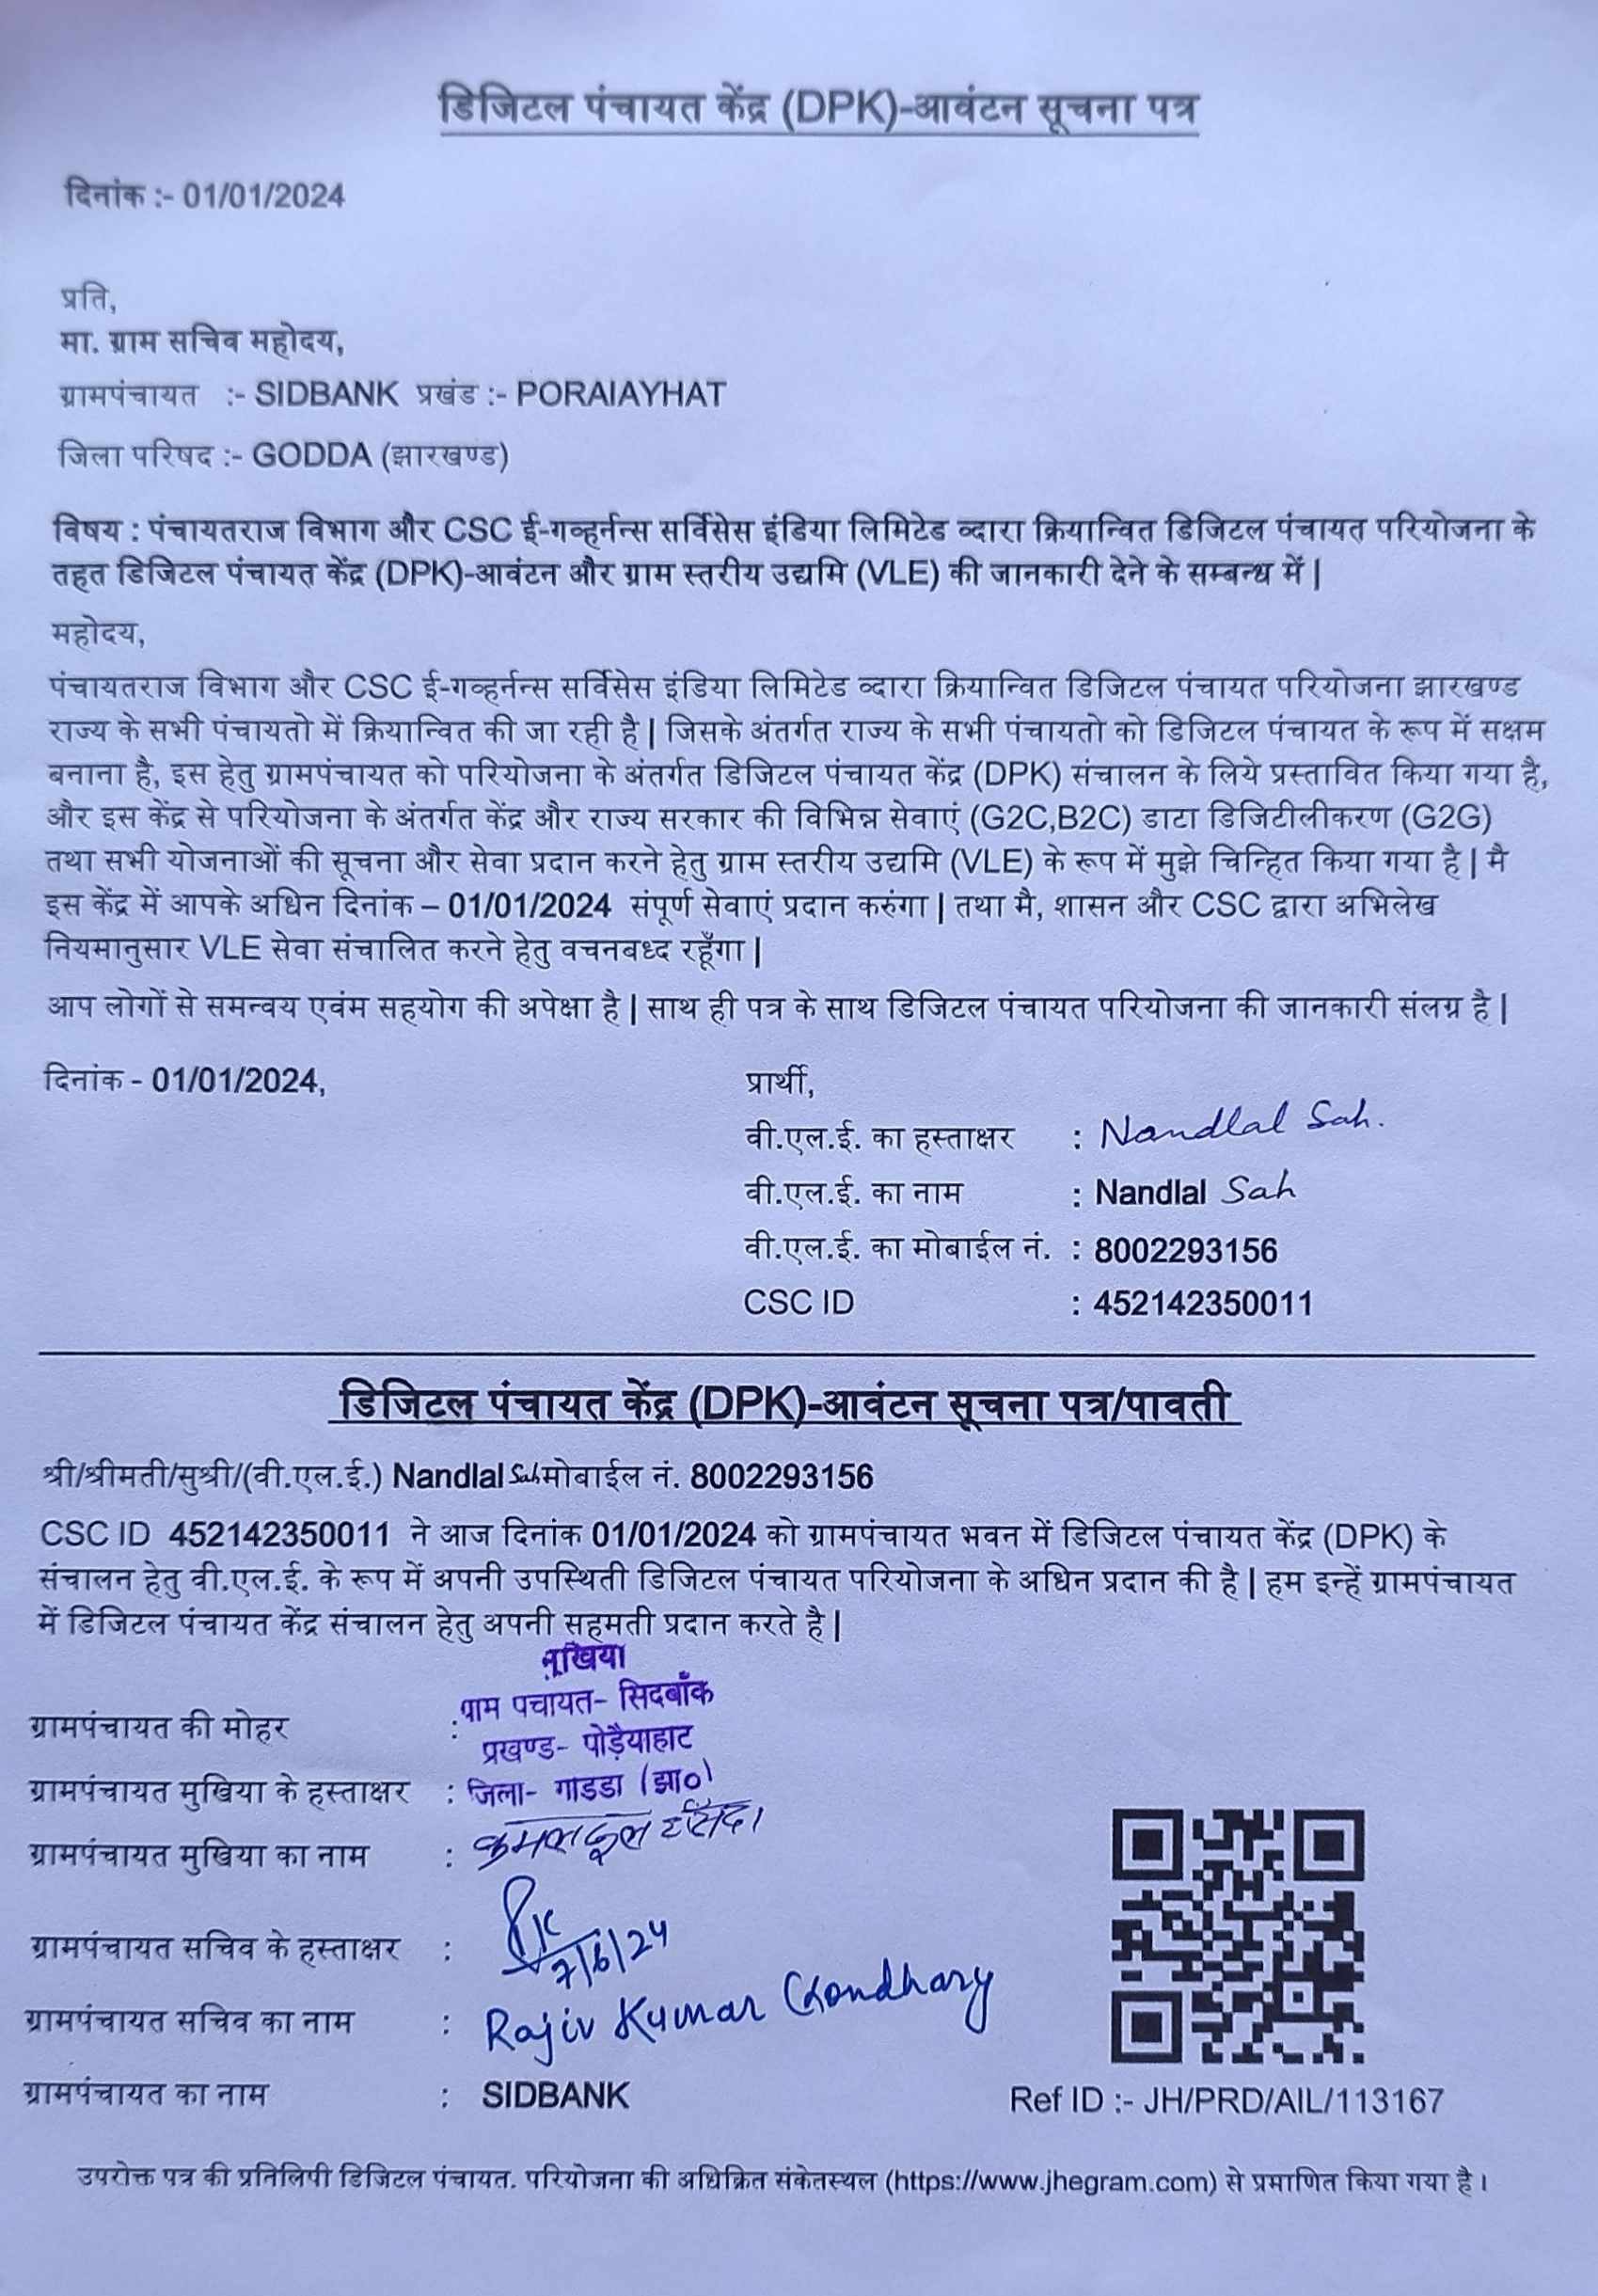 डिजिटल पंचायत केंद्र (DPK)-आवंटन सूचना पत्र
दिनांक :- 01/01/2024
प्रति,
मा. ग्राम सचिव महोदय,
ग्रामपंचायत :- SIDBANK प्रखंड :- PORAIAYHAT
जिला परिषद :- GODDA (झारखण्ड)
विषय : पंचायतराज विभाग और CSC ई-गव्हर्नन्स सर्विसेस इंडिया लिमिटेड व्दारा क्रियान्वित डिजिटल पंचायत परियोजना के
तहत डिजिटल पंचायत केंद्र (DPK)-आवंटन और ग्राम स्तरीय उद्यमि (VLE) की जानकारी देने के सम्बन्ध में |
महोदय,
पंचायतराज विभाग और CSC ई-गव्हर्नन्स सर्विसेस इंडिया लिमिटेड व्दारा क्रियान्वित डिजिटल पंचायत परियोजना झारखण्ड
राज्य के सभी पंचायतो में क्रियान्वित की जा रही है | जिसके अंतर्गत राज्य के सभी पंचायतो को डिजिटल पंचायत के रूप में सक्षम
बनाना है, इस हेतु ग्रामपंचायत को परियोजना के अंतर्गत डिजिटल पंचायत केंद्र (DPK) संचालन के लिये प्रस्तावित किया गया है,
और इस केंद्र से परियोजना के अंतर्गत केंद्र और राज्य सरकार की विभिन्न सेवाएं (G2C,B2C) डाटा डिजिटीलीकरण (G2G)
तथा सभी योजनाओं की सूचना और सेवा प्रदान करने हेतु ग्राम स्तरीय उद्यमि (VLE) के रूप में मुझे चिन्हित किया गया है | मै
इस केंद्र में आपके अधिन दिनांक – 01/01/2024 संपूर्ण सेवाएं प्रदान करुंगा | तथा मै, शासन और CSC द्वारा अभिलेख
नियमानुसार VLE सेवा संचालित करने हेतु वचनबध्द रहूँगा |
आप लोगों से समन्वय एवंम सहयोग की अपेक्षा है | साथ ही पत्र के साथ डिजिटल पंचायत परियोजना की जानकारी संलग्न है |
दिनांक - 01/01/2024,
प्रार्थी,
वी.एल.ई. का हस्ताक्षर : Nandlal Sah.
वी.एल.ई. का नाम : Nandlal Sah
वी.एल.ई. का मोबाईल नं. : 8002293156
CSC ID : 452142350011
डिजिटल पंचायत केंद्र (DPK)-आवंटन सूचना पत्र/पावती
श्री/श्रीमती/सुश्री/(वी.एल.ई.) Nandlal Sah मोबाईल नं. 8002293156
CSC ID 452142350011 ने आज दिनांक 01/01/2024 को ग्रामपंचायत भवन में डिजिटल पंचायत केंद्र (DPK) के
संचालन हेतु वी.एल.ई. के रूप में अपनी उपस्थिती डिजिटल पंचायत परियोजना के अधिन प्रदान की है | हम इन्हें ग्रामपंचायत
में डिजिटल पंचायत केंद्र संचालन हेतु अपनी सहमती प्रदान करते है |
मुखिया
ग्राम पचायत- सिदबाँक
ग्रामपंचायत की मोहर :
प्रखण्ड- पोड़ैयाहाट
ग्रामपंचायत मुखिया के हस्ताक्षर : जिला- गोड्डा (झा०)
ग्रामपंचायत मुखिया का नाम :
ग्रामपंचायत सचिव के हस्ताक्षर : 7/6/24
ग्रामपंचायत सचिव का नाम : Rajiv Kumar Choudhary
ग्रामपंचायत का नाम : SIDBANK
Ref ID :- JH/PRD/AIL/113167
उपरोक्त पत्र की प्रतिलिपी डिजिटल पंचायत. परियोजना की अधिक्रित संकेतस्थल (https://www.jhegram.com) से प्रमाणित किया गया है ।